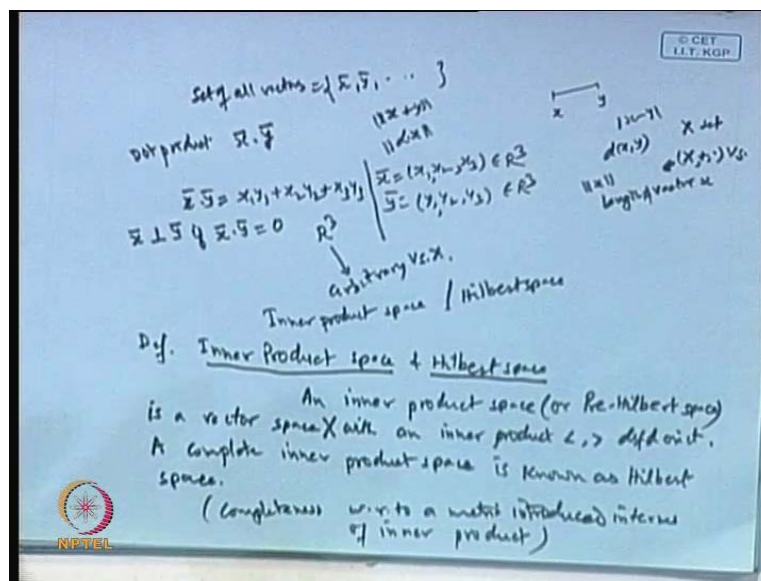 © CET
I.I.T. KGP
Set of all vectors = {x̄, ȳ, ... }
Dot product x̄.ȳ
||x+y||
||αx||
x y
|x-y|
d(x,y)
X set
(X,+,·) V.S.
||x||
Length of vector x
x̄ ȳ = x₁y₁+x₂y₂+x₃y₃
x̄ = (x₁,x₂,x₃) ∈ R³
ȳ = (y₁,y₂,y₃) ∈ R³
x̄ ⊥ ȳ if x̄.ȳ = 0 R³
arbitrary V.S. X.
Inner product space / Hilbert space
Def. Inner Product space & Hilbert space
An inner product space (or Pre-Hilbert space)
is a vector space X with an inner product <,> defd on it.
A complete inner product space is known as Hilbert
space.
(Completeness w.r. to a metric introduced in terms
of inner product)
NPTEL